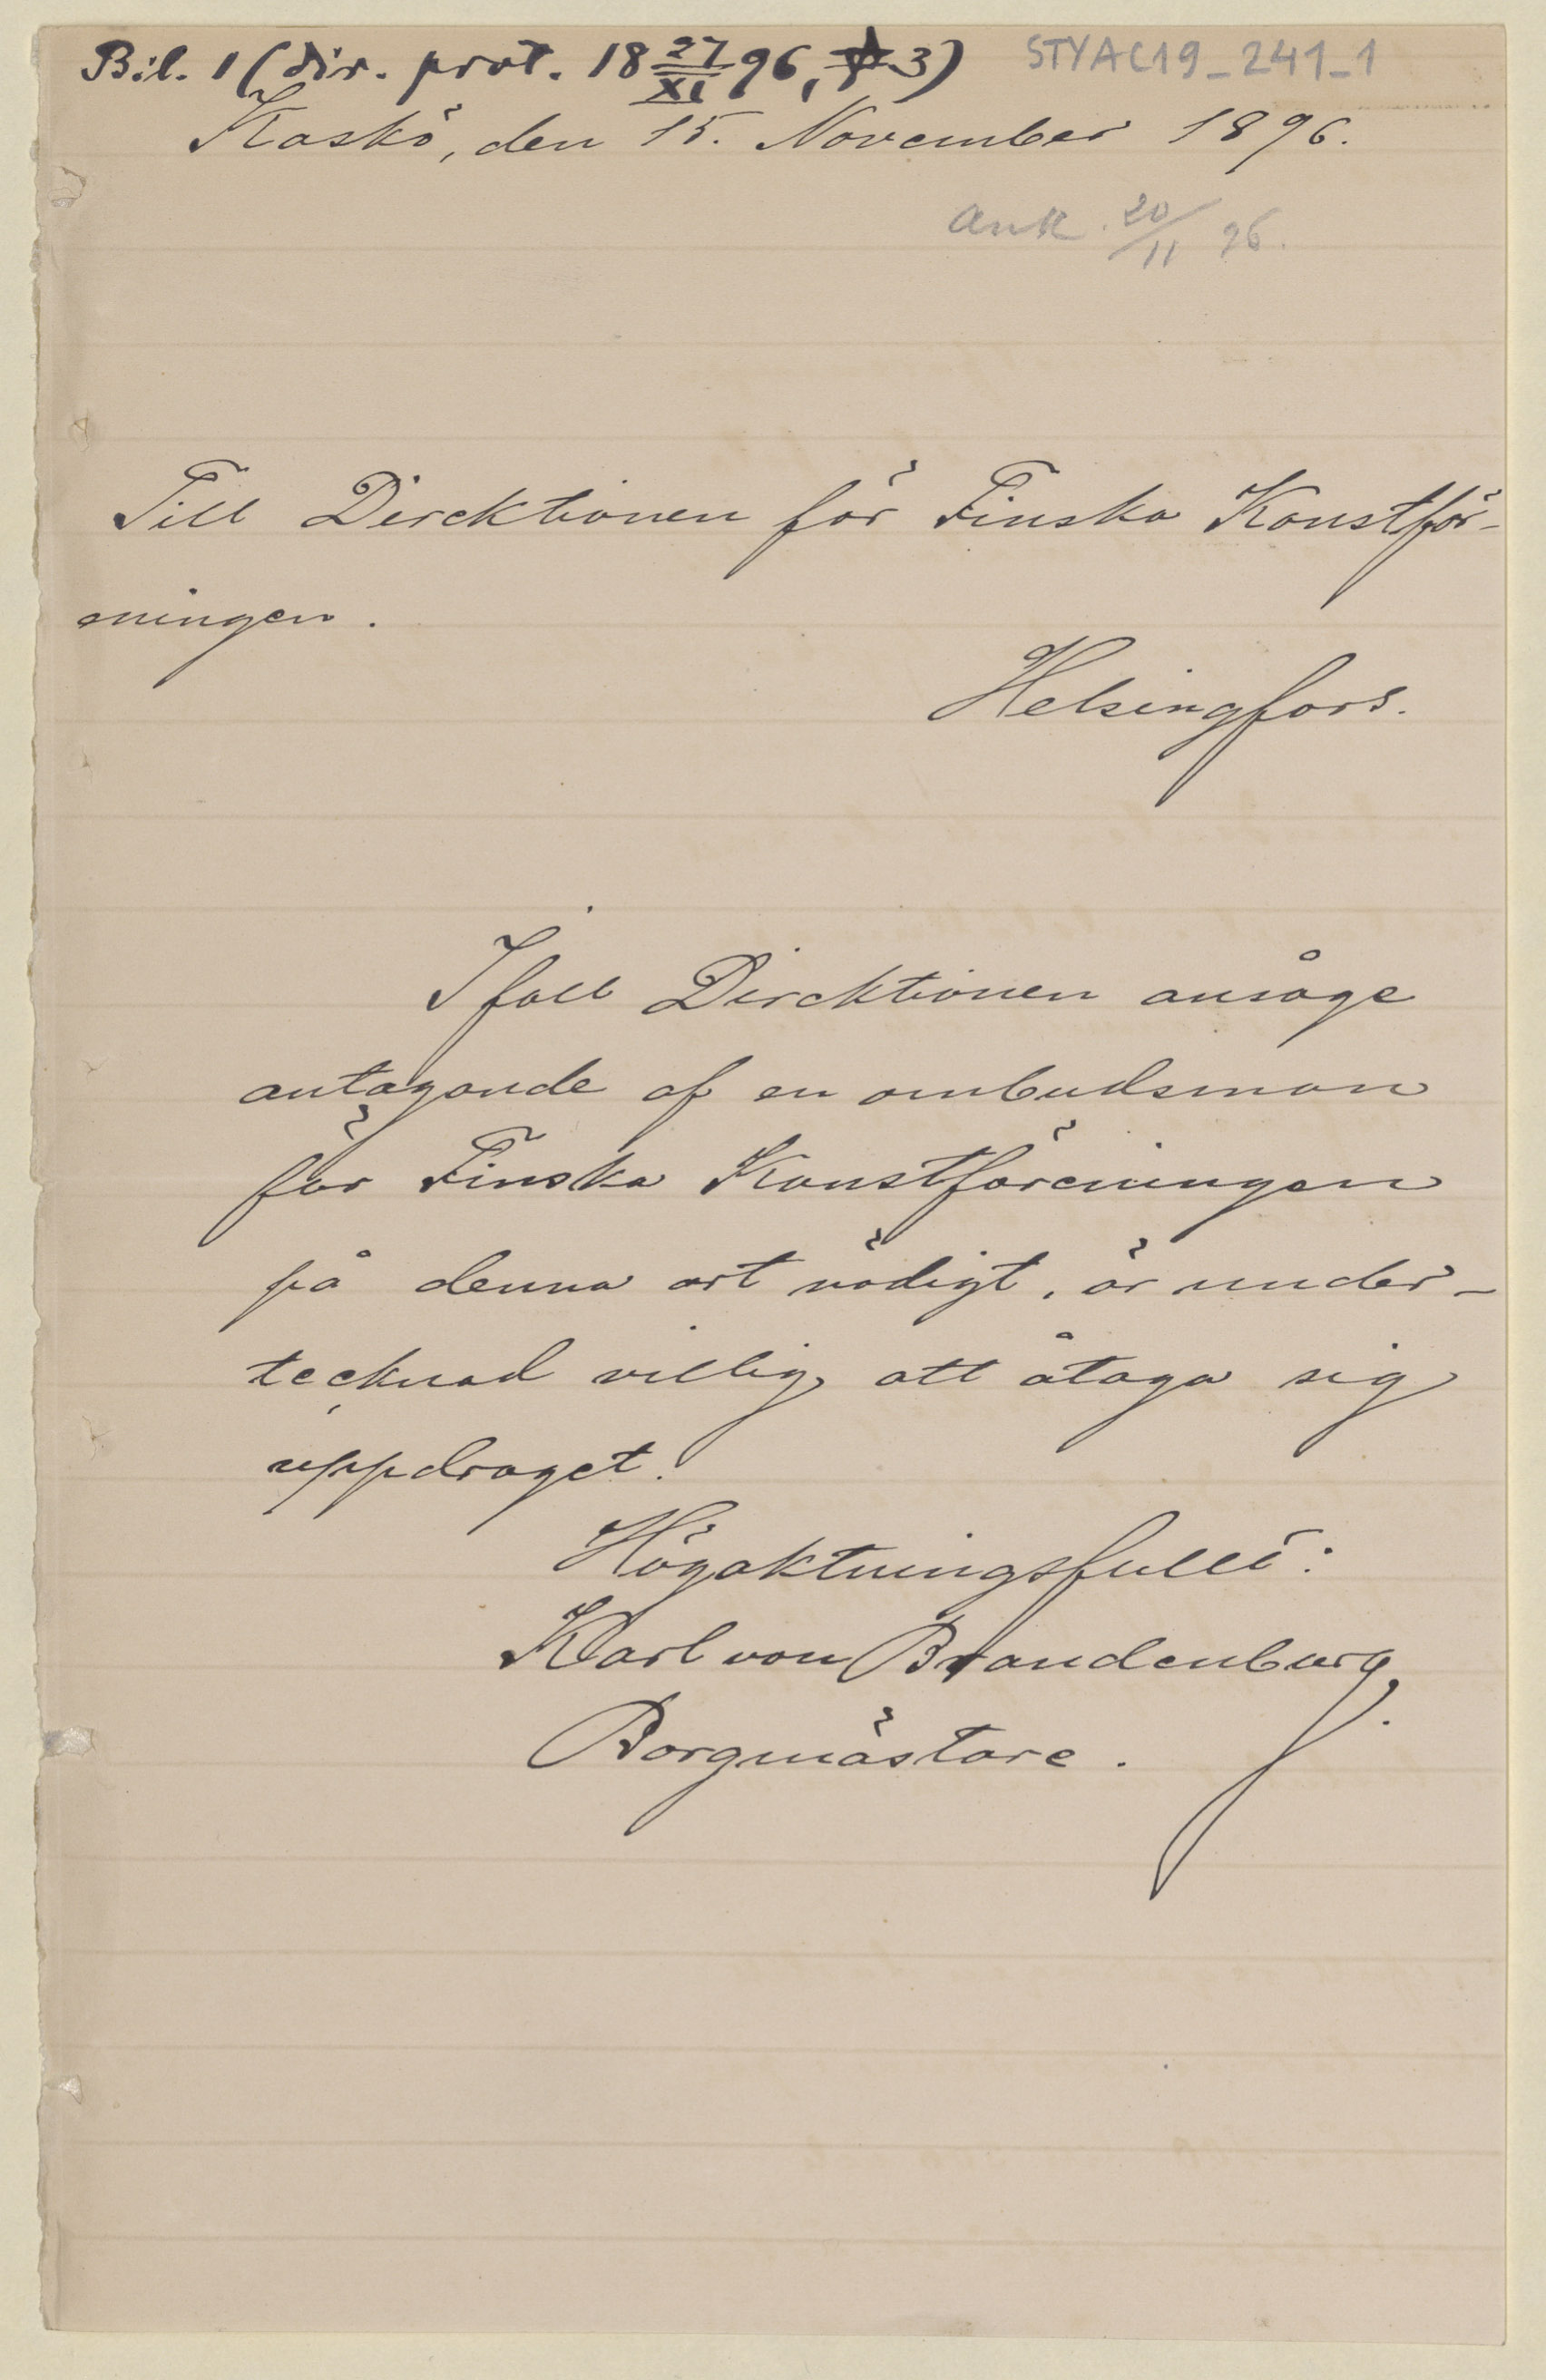 Bil. 1 (dir. prot. 18 27/XI 96, 3) STYAC19_241_1
Kaskö, den 15. November 1896.
Ank. 20/11 96.
Till Direktionen för Finska Konstför-
eningen.
Helsingfors.
Ifall Direktionen ansåge
antagande af en ombudsman
för Finska Konstföreningen
på denna ort nödigt, är under-
tecknad villig att åtaga sig
uppdraget.
Högaktningsfullt:
Karl von Brandenburg.
Borgmästare.